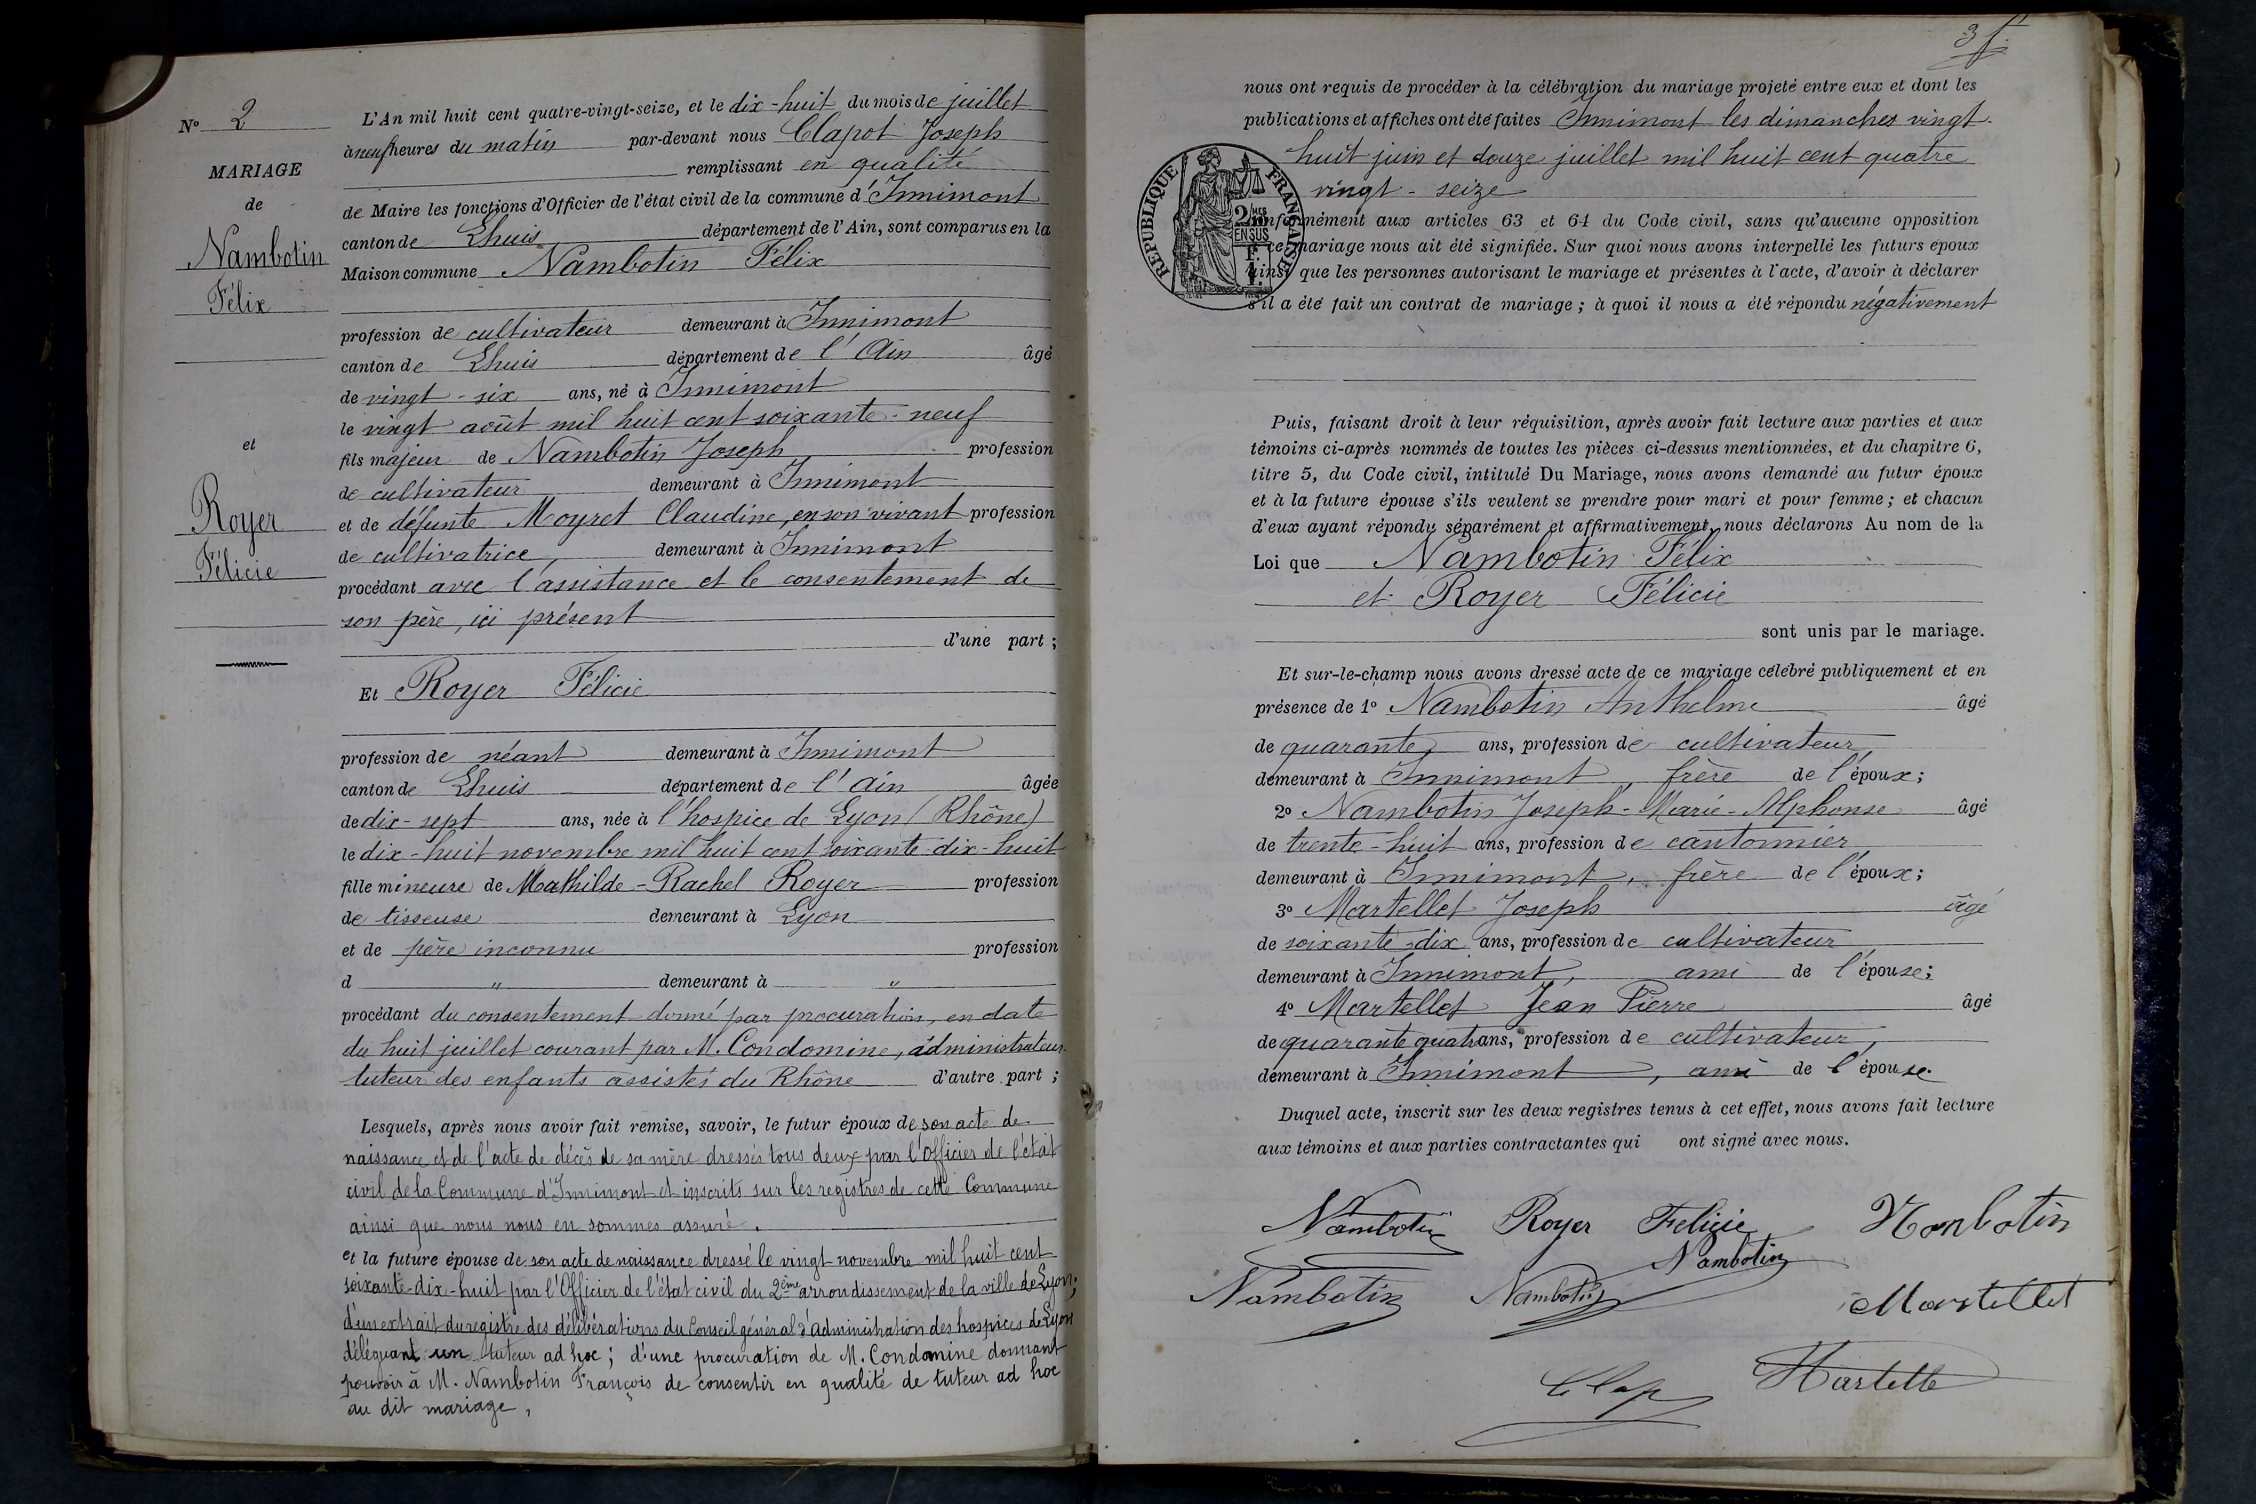 N° 2
MARIAGE
de
Nambotin
Félix
et
Royer
Félicie
L'An mil huit cent quatre-vingt-seize, et le dix-huit du mois de juillet
à neuf heures du matin par-devant nous Clapot Joseph
remplissant en qualité
de Maire les fonctions d'Officier de l'état civil de la commune d'Innimont
canton de Lhuis département de l'Ain, sont comparus en la
Maison commune Nambotin Félix
profession de cultivateur demeurant à Innimont
canton de Lhuis département de l'Ain âgé
de vingt-six ans, né à Innimont
le vingt août mil huit cent soixante-neuf
fils majeur de Nambotin Joseph profession
de cultivateur demeurant à Innimont
et de défunte Moyret Claudine, en son vivant profession
de cultivatrice, demeurant à Innimont
procédant avec l'assistance et le consentement de
son père, ici présent
d'une part ;
Et Royer Félicie
profession de néant demeurant à Innimont
canton de Lhuis département de l'Ain âgée
de dix-sept ans, née à l'hospice de Lyon (Rhône)
le dix-huit novembre mil huit cent soixante-dix-huit
fille mineure de Mathilde-Rachel Royer profession
de tisseuse demeurant à Lyon
et de père inconnu profession
d " demeurant à "
procédant du consentement donné par procuration, en date
du huit juillet courant par M. Condomine, administrateur-
tuteur des enfants assistés du Rhône d'autre part ;
Lesquels, après nous avoir fait remise, savoir, le futur époux de son acte de
naissance et de l'acte de décès de sa mère dressés tous deux par l'Officier de l'état
civil de la Commune d'Innimont et inscrits sur les registres de cette Commune
ainsi que nous nous en sommes assuré.
et la future épouse de son acte de naissance dressé le vingt novembre mil huit cent
soixante-dix-huit par l'Officier de l'état civil du 2ème arrondissement de la ville de Lyon;
d'un extrait du registre des délibérations du Conseil général d'administration des hospices de Lyon
déléguant un tuteur ad hoc ; d'une procuration de M. Condomine donnant
pouvoir à M. Nambotin François de consentir en qualité de tuteur ad hoc
au dit mariage,
3
nous ont requis de procéder à la célébration du mariage projeté entre eux et dont les
publications et affiches ont été faites Innimont les dimanches vingt-
huit juin et douze juillet mil huit cent quatre
vingt-seize
RÉPUBLIQUE FRANÇAISE
2/10es
EN SUS
1 F.
conformément aux articles 63 et 64 du Code civil, sans qu'aucune opposition
à ce mariage nous ait été signifiée. Sur quoi nous avons interpellé les futurs époux
ainsi que les personnes autorisant le mariage et présentes à l'acte, d'avoir à déclarer
s'il a été fait un contrat de mariage ; à quoi il nous a été répondu négativement
Puis, faisant droit à leur réquisition, après avoir fait lecture aux parties et aux
témoins ci-après nommés de toutes les pièces ci-dessus mentionnées, et du chapitre 6,
titre 5, du Code civil, intitulé Du Mariage, nous avons demandé au futur époux
et à la future épouse s'ils veulent se prendre pour mari et pour femme ; et chacun
d'eux ayant répondu séparément et affirmativement, nous déclarons Au nom de la
Loi que Nambotin Félix
et Royer Félicie
sont unis par le mariage.
Et sur-le-champ nous avons dressé acte de ce mariage célébré publiquement et en
présence de 1° Nambotin Anthelme âgé
de quarante ans, profession de cultivateur,
demeurant à Innimont, frère de l'époux ;
2° Nambotin Joseph-Marie-Alphonse âgé
de trente-huit ans, profession de cantonnier,
demeurant à Innimont, frère de l'époux ;
3° Martellet Joseph âgé
de soixante-dix ans, profession de cultivateur
demeurant à Innimont, ami de l'épouse ;
4° Martellet Jean Pierre âgé
de quarante quatre ans, profession de cultivateur,
demeurant à Innimont, ami de l'épouse.
Duquel acte, inscrit sur les deux registres tenus à cet effet, nous avons fait lecture
aux témoins et aux parties contractantes qui ont signé avec nous.
Nambotin Royer Felicie Nambotin
Nambotin
Nambotin Nambotin Martellet
Clap Martelle